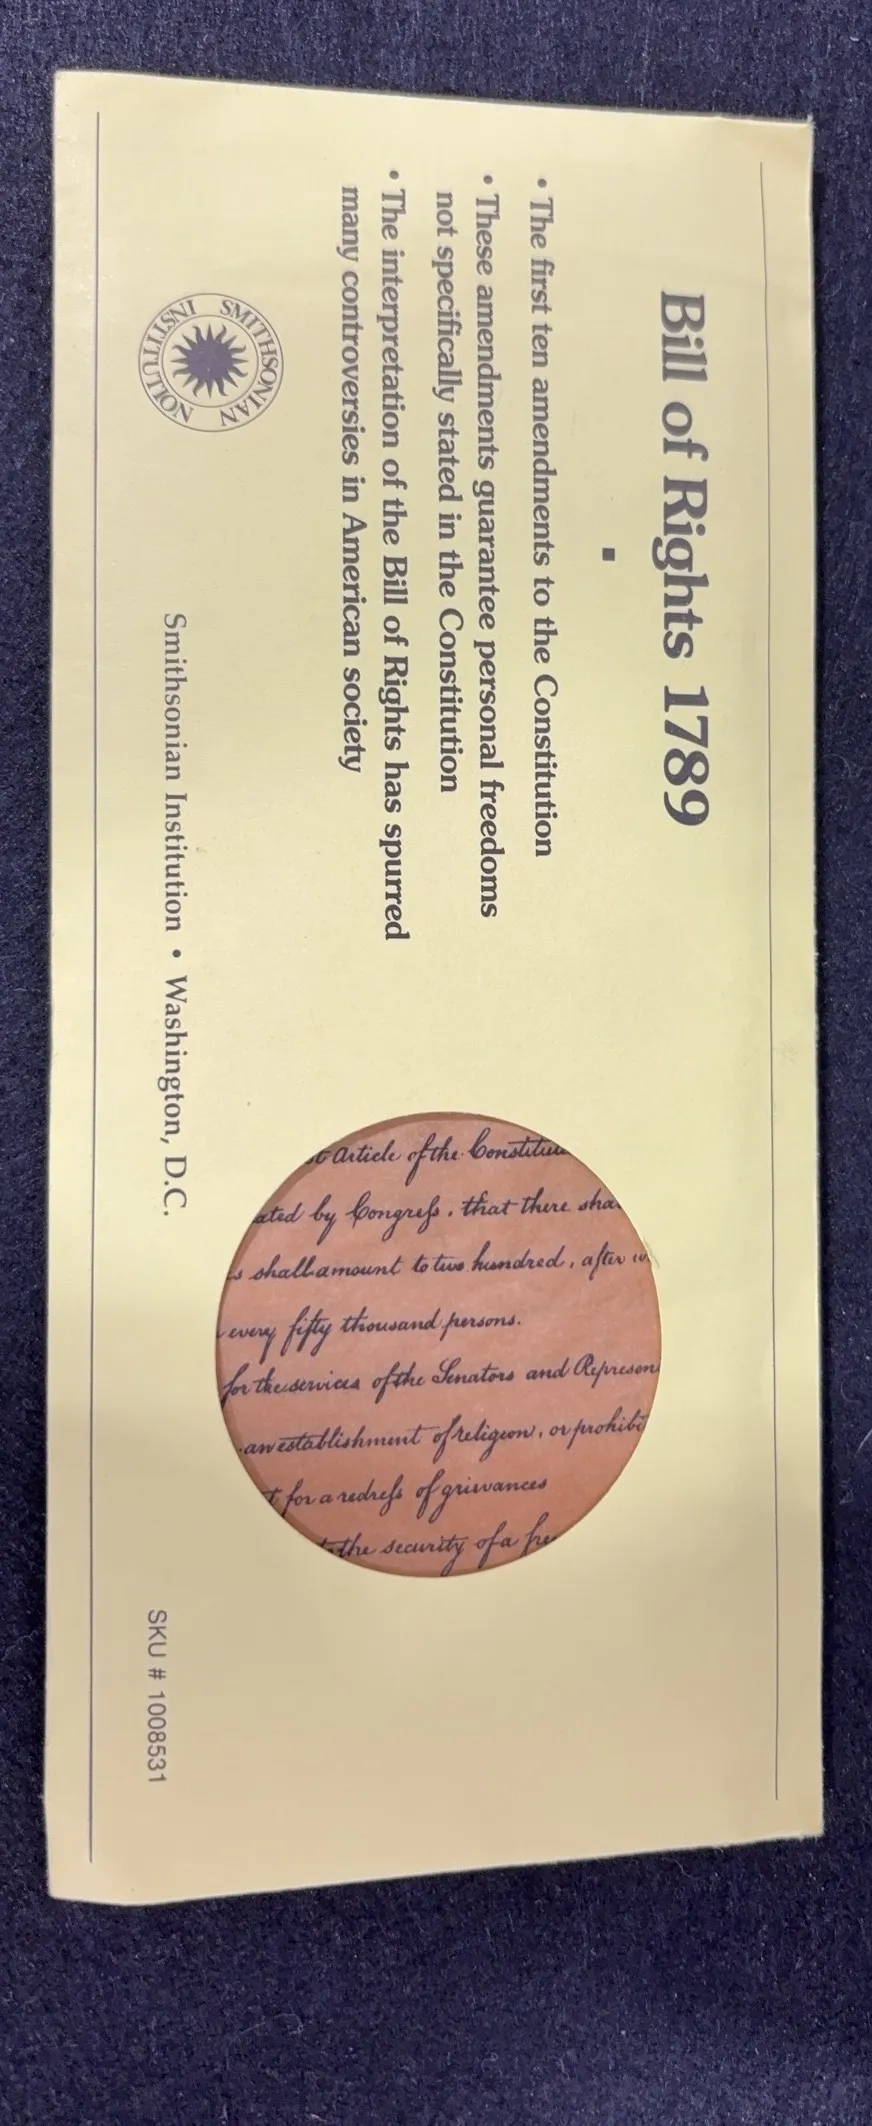 Bill of Rights 1789
• The first ten amendments to the Constitution
• These amendments guarantee personal freedoms
not specifically stated in the Constitution
• The interpretation of the Bill of Rights has spurred
many controversies in American society
SMITHSONIAN INSTITUTION
Smithsonian Institution • Washington, D.C.
st Article of the Constitu
ated by Congreſs, that there sha
s shall amount to two hundred, after w
every fifty thousand persons.
for the services of the Senators and Represen
an establishment of religion, or prohibi
t for a redreſs of grievances
the security of a fre
SKU # 1008531